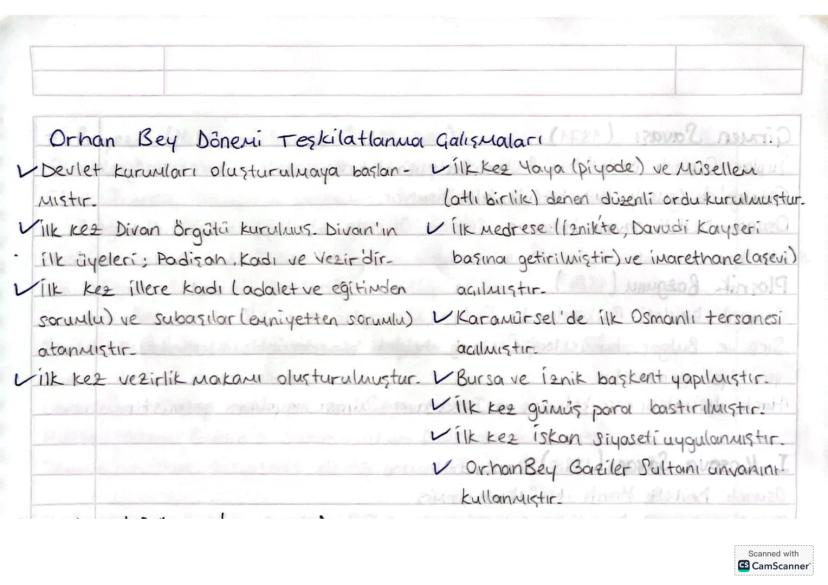 Orhan Bey Dönemi Teşkilatlanma Çalışmaları
✓Devlet kurumları oluşturulmaya başlan-
mıştır.
✓ilk kez Divan Örgütü kurulmuş. Divan'ın
ilk üyeleri; Padişah, Kadı ve Vezir'dir.
✓ilk kez illere kadı (adalet ve eğitimden
sorumlu) ve subaşılar (emniyetten sorumlu)
atanmıştır.
✓ilk kez vezirlik makamı oluşturulmuştur.
✓ilk kez Yaya (piyade) ve Müsellem
(atlı birlik) denen düzenli ordu kurulmuştur.
✓ ilk Medrese (iznik'te, Davudi Kayseri
başına getirilmiştir) ve imarethane (aşevi)
açılmıştır.
✓Karamürsel'de ilk Osmanlı tersanesi
açılmıştır.
✓Bursa ve iznik başkent yapılmıştır.
✓ilk kez gümüş para bastırılmıştır.
✓ilk kez iskan siyaseti uygulanmıştır.
✓ Orhan Bey Gaziler Sultanı unvanını
kullanmıştır.
Scanned with
CS CamScanner